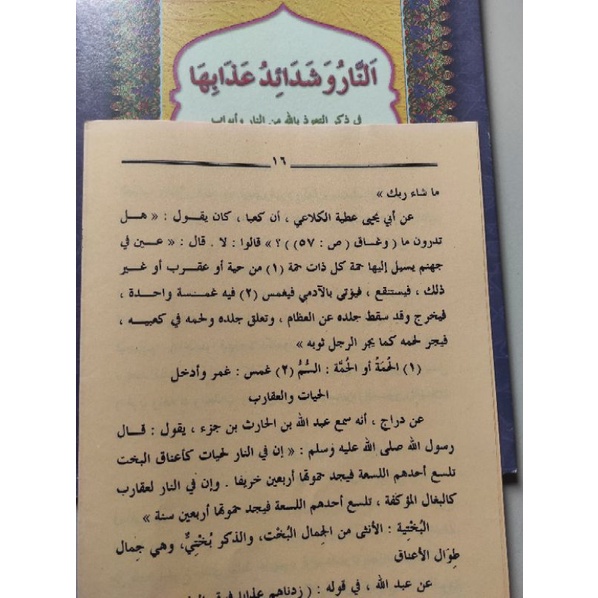 اَلنَّارُ وَشَدَائِدُ عَذَابِهَا
في ذكر التعوذ بالله من النار وأبواب
١٦
ما شاء ربك »
عن أبي يحيى عطية الكلاعي ، أن كعبا ، كان يقول : « هل
تدرون ما ( وغساق ( ص : ٥٧) ) ؟ » قالوا : لا . قال : « عين في
جهنم يسيل إليها حمة كل ذات حمة (١) من حية أو عقرب أو غير
ذلك ، فيستنقع ، فيؤتي بالآدمي فيغمس (٢) فيه غمسة واحدة ،
فيخرج وقد سقط جلده عن العظام ، وتعلق جلده ولحمه في كعبيه ،
فيجر لحمه كما يجر الرجل ثوبه »
(١) الحُمَةُ أو الحُمَّة : السُّمُّ (٢) غمس : غمر وأدخل
الحيات والعقارب
عن دراج ، أنه سمع عبد الله بن الحارث بن جزء ، يقول : قال
رسول الله صلى الله عليه وسلم : « إن في النار لحيات كأعناق البخت
تلسع أحدهم اللسعة فيجد حموتها أربعين خريفا . وإن في النار لعقارب
كالبغال المؤكفة ، تلسع أحدهم اللسعة فيجد حموتها أربعين سنة »
البُخْتِية : الأنثى من الجِمال البُخْت، والذكر بُخْتِيٌّ، وهي جِمال
طِوَال الأعناق
عن عبد الله ، في قوله : ( زدناهم عذابا فوق